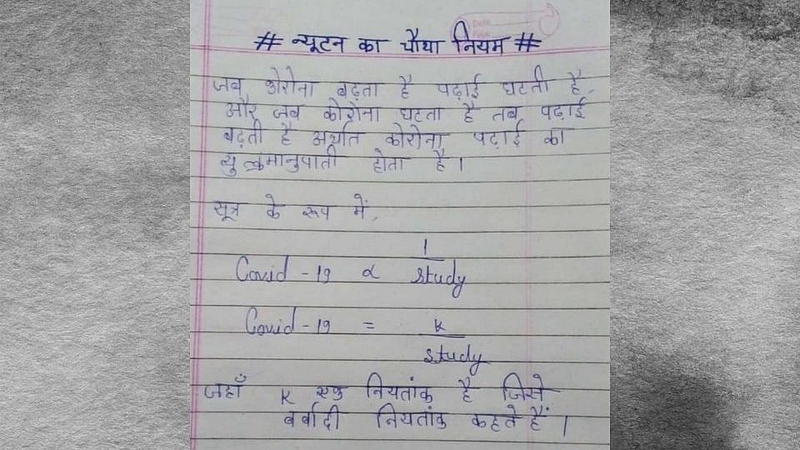 # न्यूटन का चौथा नियम #
जब कोरोना बढ़ता है पढ़ाई घटती है,
और जब कोरोना घटता है तब पढ़ाई
बढ़ती है अर्थात कोरोना पढ़ाई का
व्युत्क्रमानुपाती होता है।
सूत्र के रूप में,
Covid-19 ∝ 1/study
Covid-19 = K/study
जहाँ K एक नियतांक है जिसे
बर्बादी नियतांक कहते हैं।